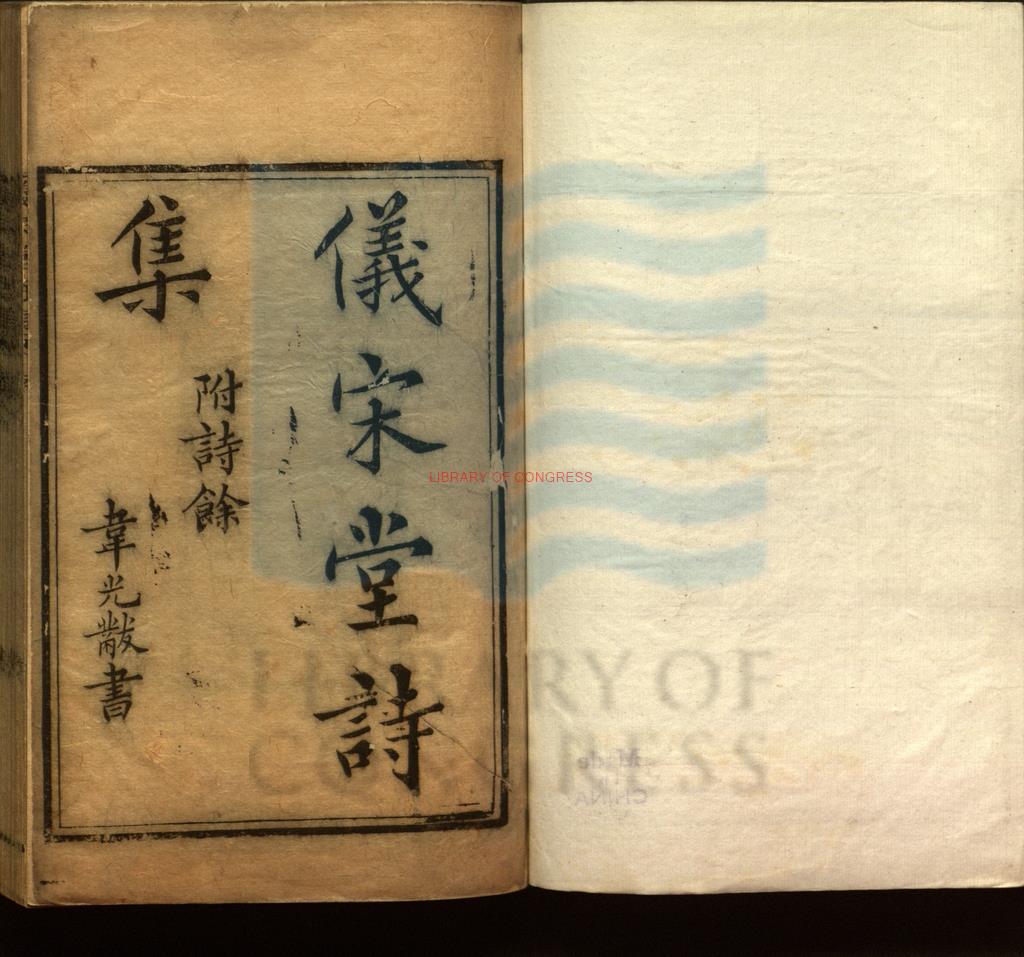 儀宋堂詩
集
附詩餘
韋光黻書
LIBRARY OF CONGRESS
LIBRARY OF
CONGRESS
Made
CHINA